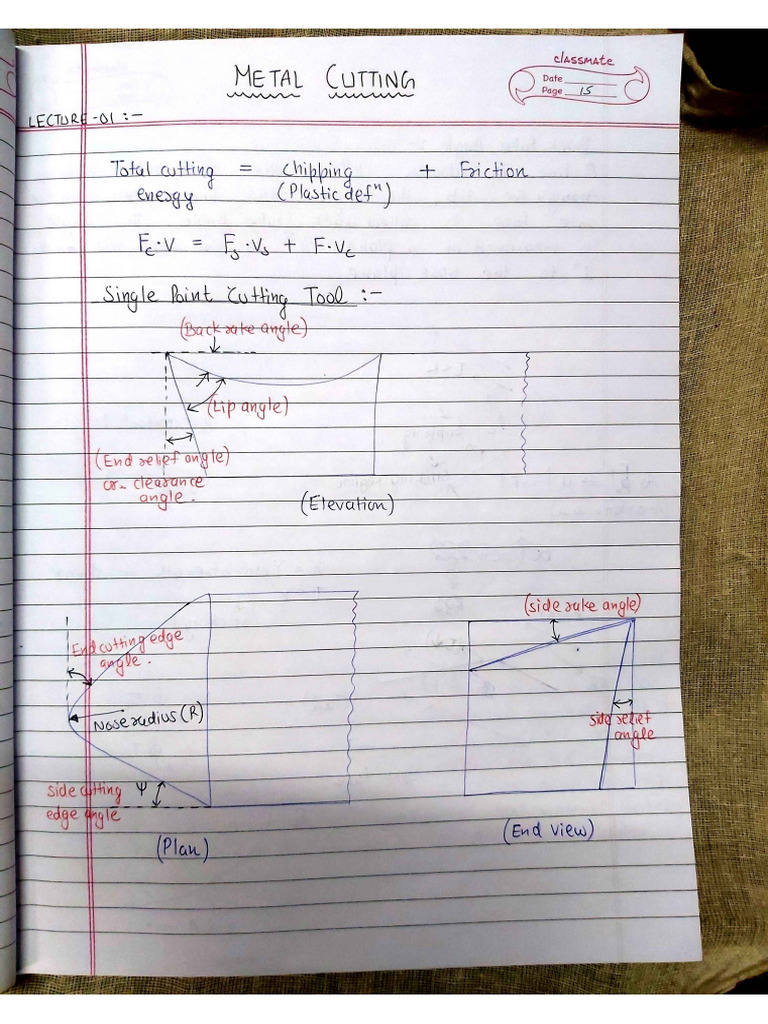 classmate
Date
Page 15
METAL CUTTING
LECTURE-01 :-
Total cutting energy = Chipping (Plastic defⁿ) + Friction
F_C·V = F_S·V_S + F·V_C
Single Point Cutting Tool :-
(Back rake angle)
(Lip angle)
(End relief angle)
or clearance
angle.
(Elevation)
(side rake angle)
End cutting edge
angle.
Nose radius (R)
side relief
angle
side cutting
edge angle
ψ
(Plan)
(End view)